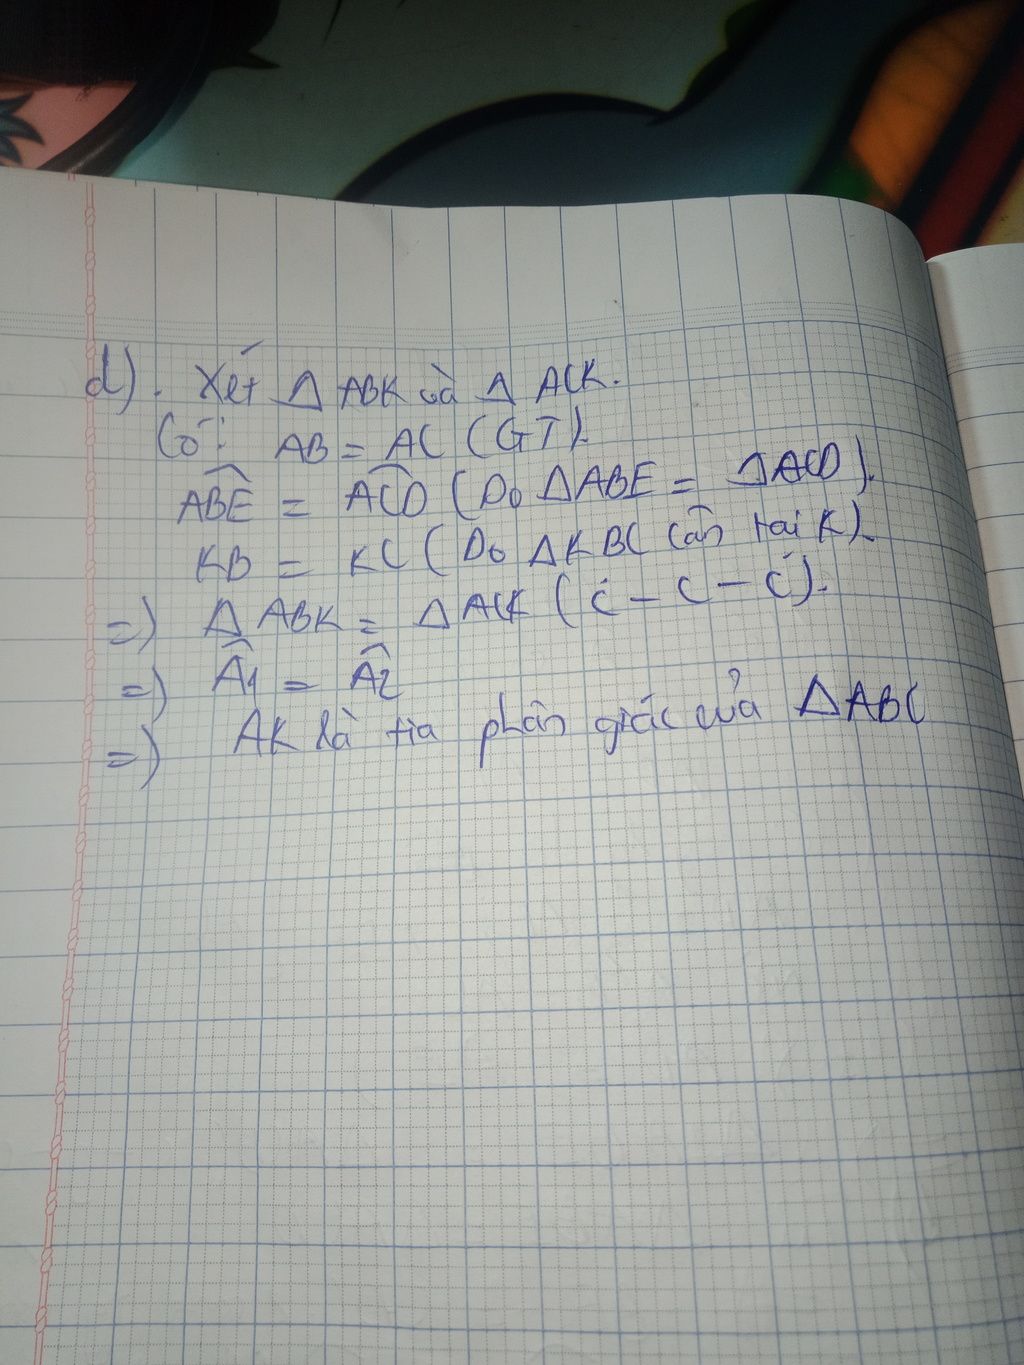 d). Xét Δ ABK và Δ ACK.
Có: AB = AC (GT).
ABE = ACD (Do ΔABE = ΔACD).
KB = KC (Do ΔKBC cân tại K).
=) Δ ABK = ΔACK (c - c - c).
=) Â1 = Â2
=) AK là tia phân giác của ΔABC